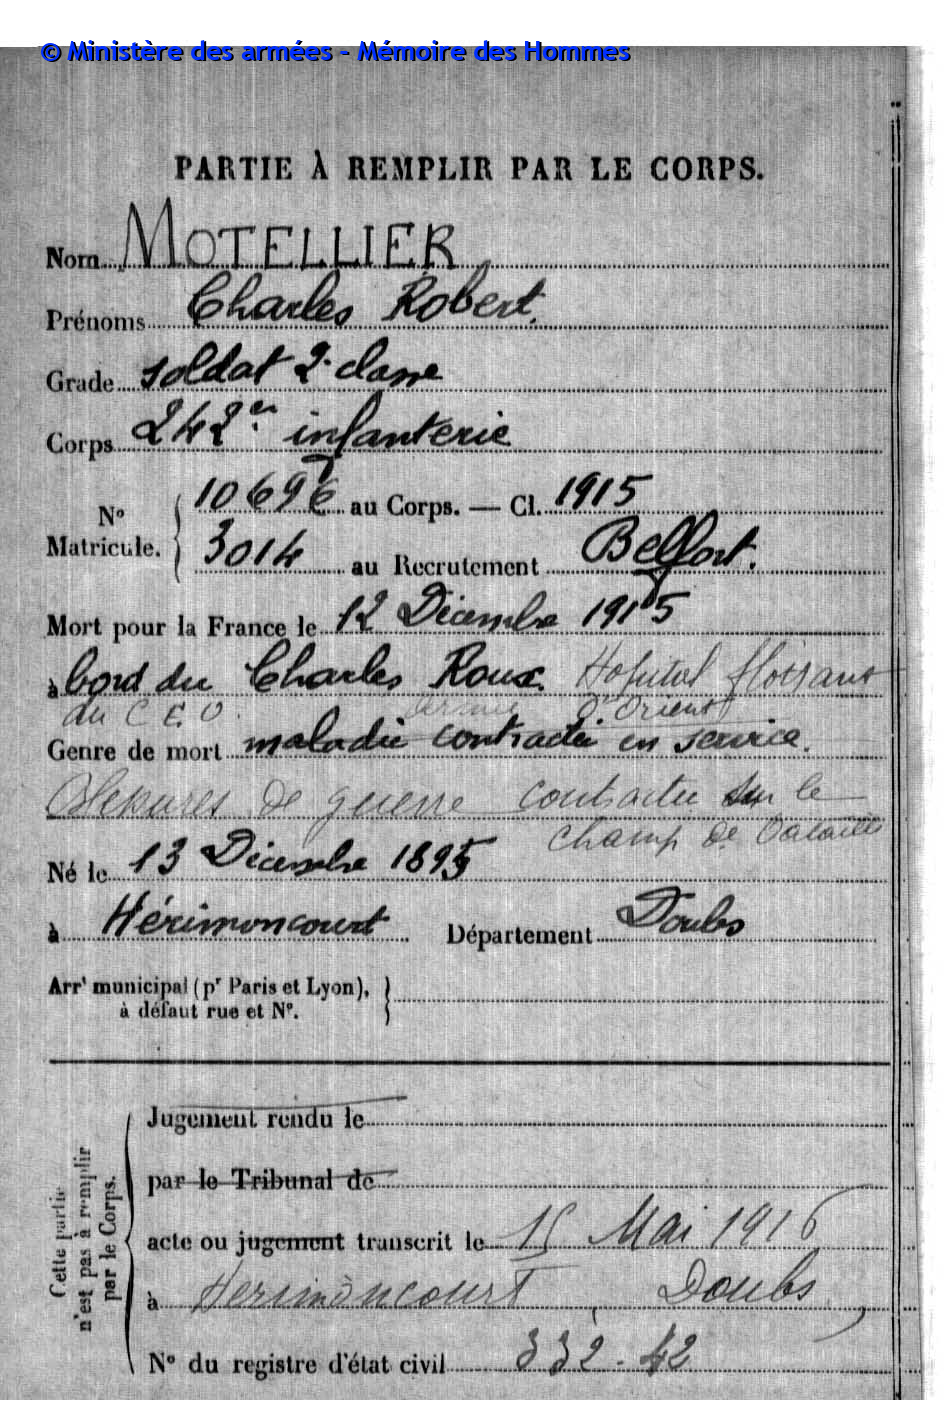 © Ministère des armées - Mémoire des Hommes
PARTIE À REMPLIR PAR LE CORPS.
Nom MOTELLIER
Prénoms Charles Robert.
Grade soldat 2e classe
Corps 242e infanterie
N° Matricule. { 10696 au Corps. — Cl. 1915
3014 au Recrutement Belfort.
Mort pour la France le 12 Décembre 1915
à bord du Charles Roux. Hopital flottant
du C E O. armée d'Orient
Genre de mort maladie contractée en service.
Blessures de guerre contractée sur le
champ de bataille
Né le 13 Décembre 1895
à Hérimoncourt Département Doubs
Arrt municipal (pr Paris et Lyon), }
à défaut rue et N°.
Cette partie n'est pas à remplir par le Corps.
Jugement rendu le
par le Tribunal de
acte ou jugement transcrit le 15 Mai 1916
à Herimoncourt, Doubs
N° du registre d'état civil 332-42